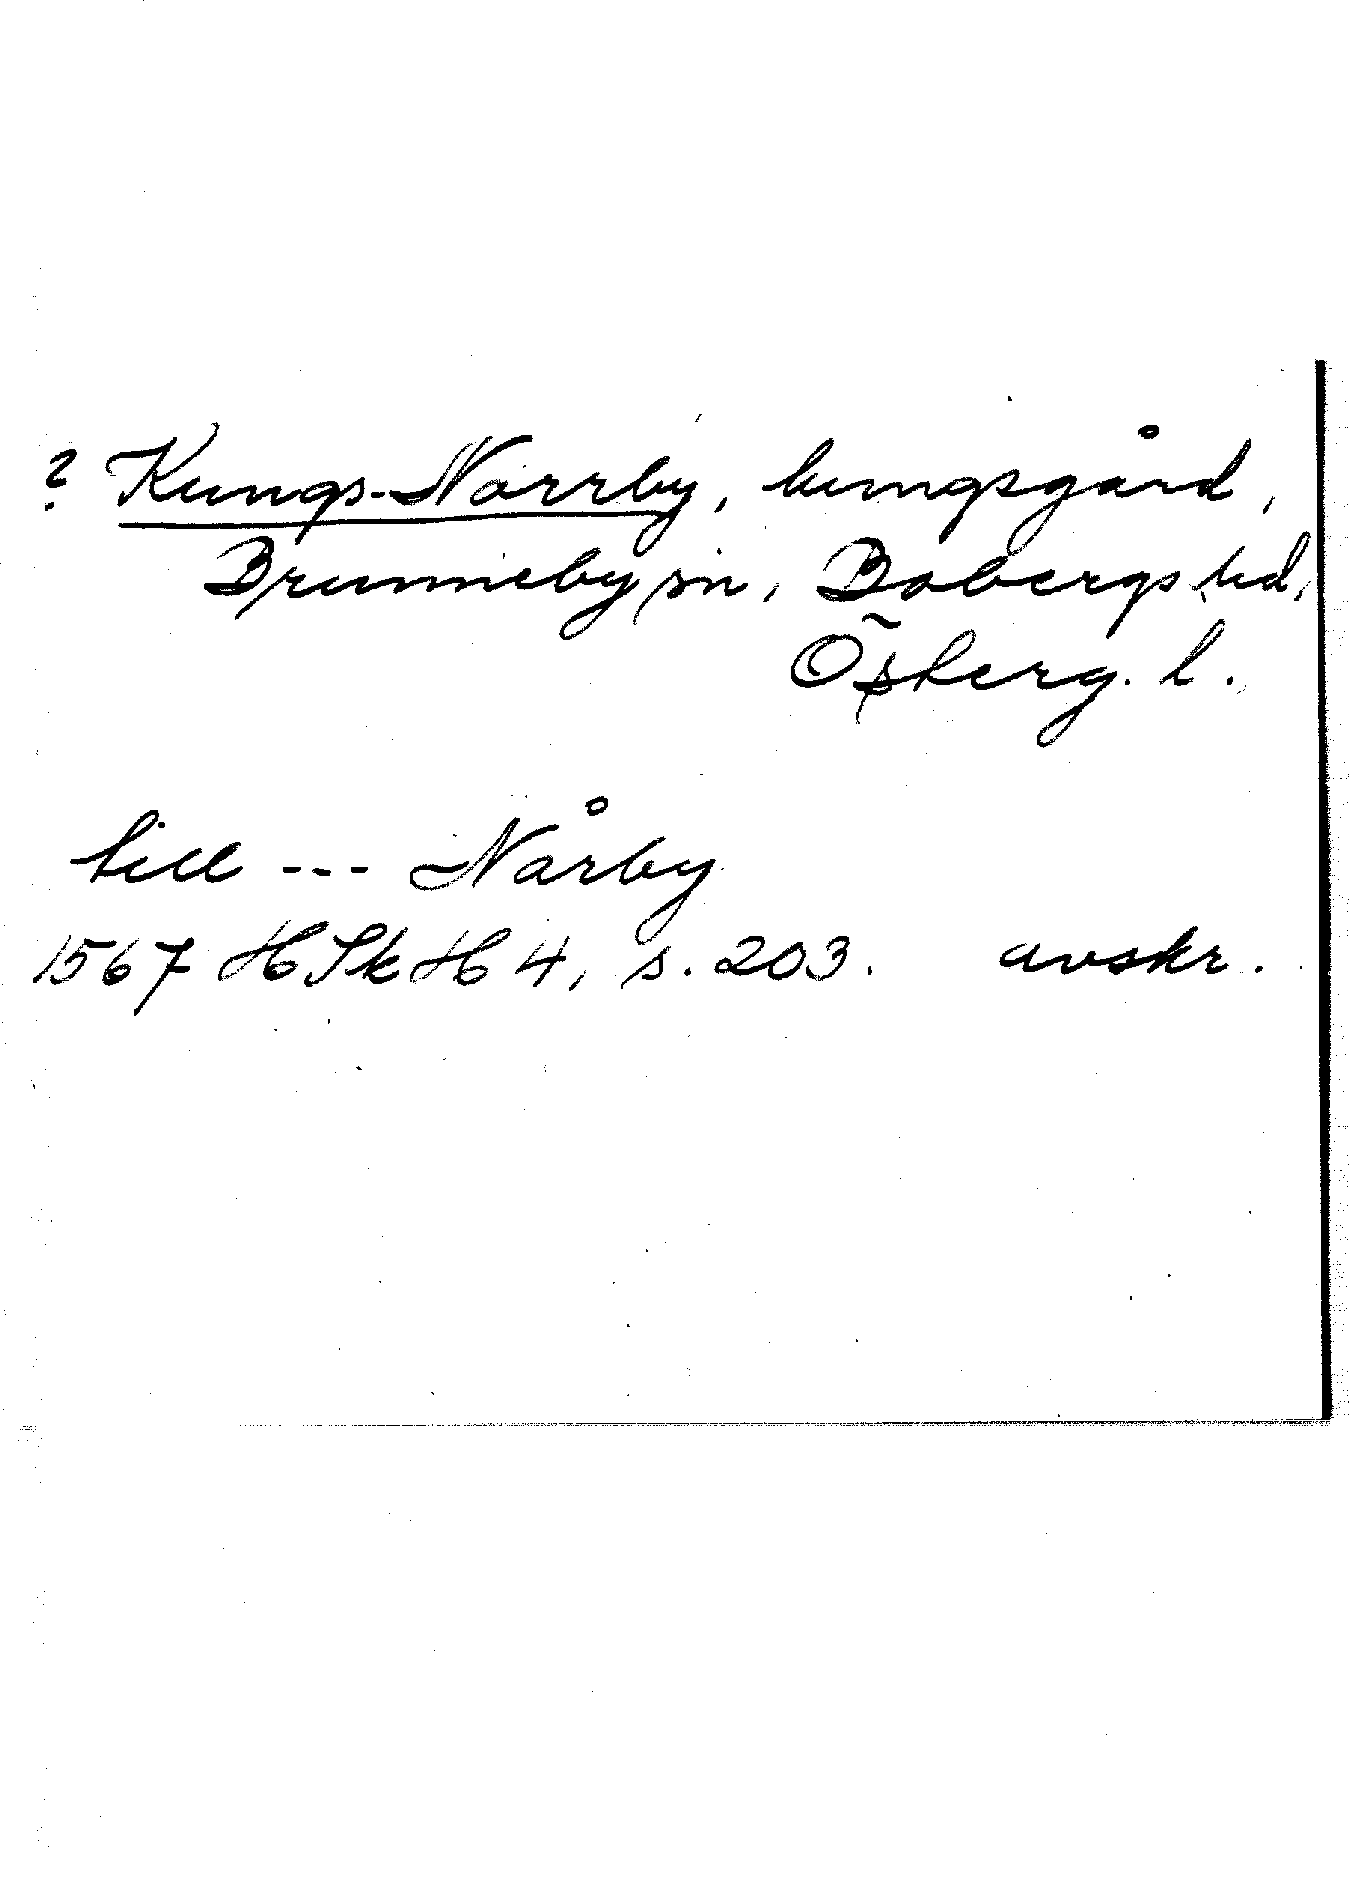 ? Kungs-Norrby, kungsgård,
Brunneby sn, Bobergs hd,
Östberg. l.
till --- Nårby
1567 HSkH 4, s. 203. avskr.